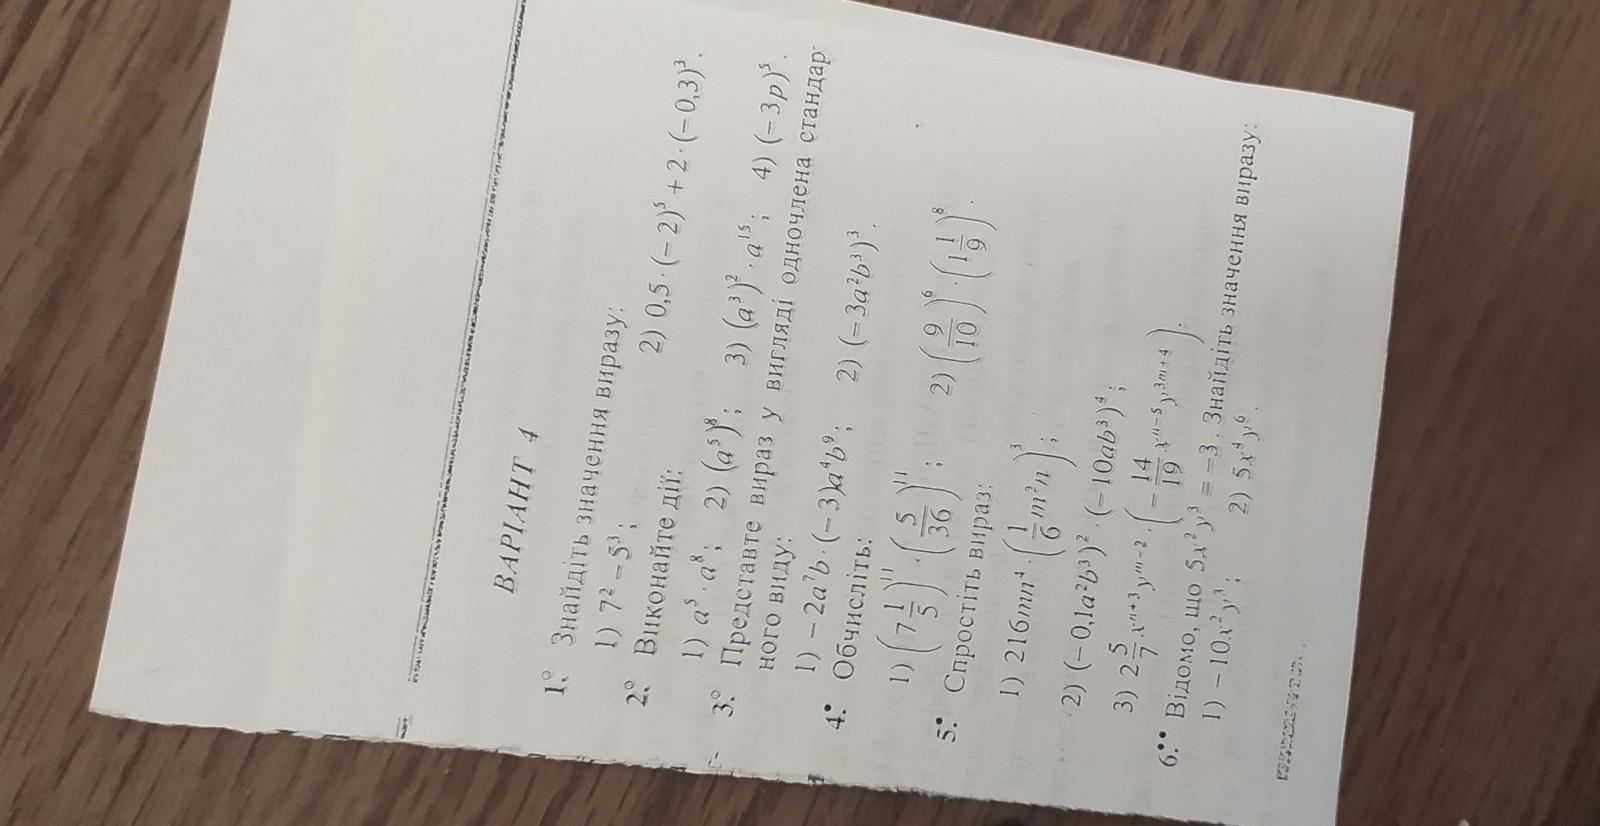 ВАРІАНТ 4
1.° Знайдіть значення виразу:
1) 7² – 5³; 2) 0,5 · (–2)⁵ + 2 · (–0,3)³.
2.° Виконайте дії:
1) a⁵ · a⁸; 2) (a⁵)⁸; 3) (a³)² · a¹⁵; 4) (–3p)⁵.
3.° Представте вираз у вигляді одночлена стандар
ного виду:
1) –2a⁷b · (–3)a⁴b⁹; 2) (–3a²b³)³.
4.• Обчисліть:
1) (7 1/5)¹¹ · (5/36)¹¹; 2) (9/10)⁶ · (1 1/9)⁸.
5.• Спростіть вираз:
1) 216mn⁴ · (1/6 m²n)³;
2) (–0,1a²b³)² · (–10ab³)⁴;
3) 2 5/7 xⁿ⁺³yᵐ⁻² · (– 14/19 xⁿ⁻⁵y³ᵐ⁺⁴).
6.•• Відомо, що 5x²y³ = –3. Знайдіть значення виразу:
1) –10x²y³; 2) 5x⁴y⁶.